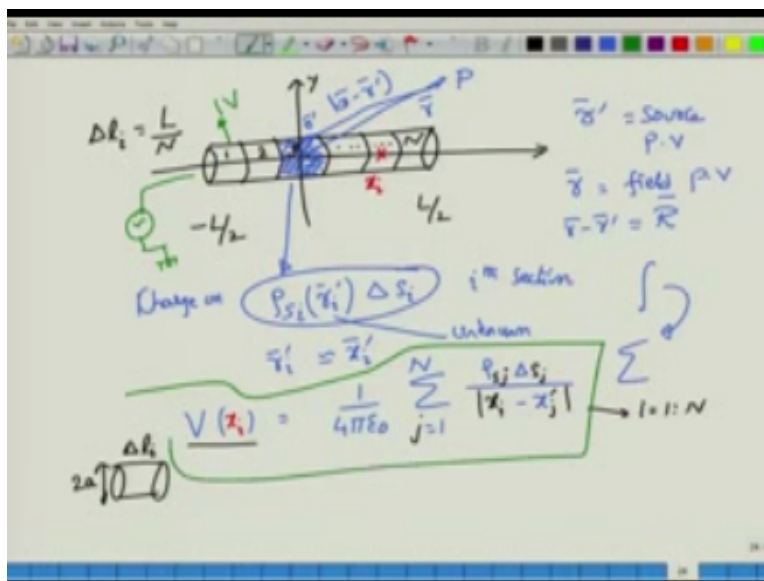 y
1V
|r̄-r̄'|
P
r̄'
r̄
Δl_i = L/N
1 2 ... ... N
x_i
-L/2
L/2
r̄' = source
P.V
r̄ = field P.V
r̄-r̄' = R̄
Charge on ρ_si(r̄_i') Δs_i iᵗʰ section
∫
unknown
r̄_i' = x̄_i'
∑
V(x_i) = 1/4πε₀ ∑_{j=1}^{N} ρ_sj Δs_j / |x_i - x_j'|
i=1:N
Δl_i
2a